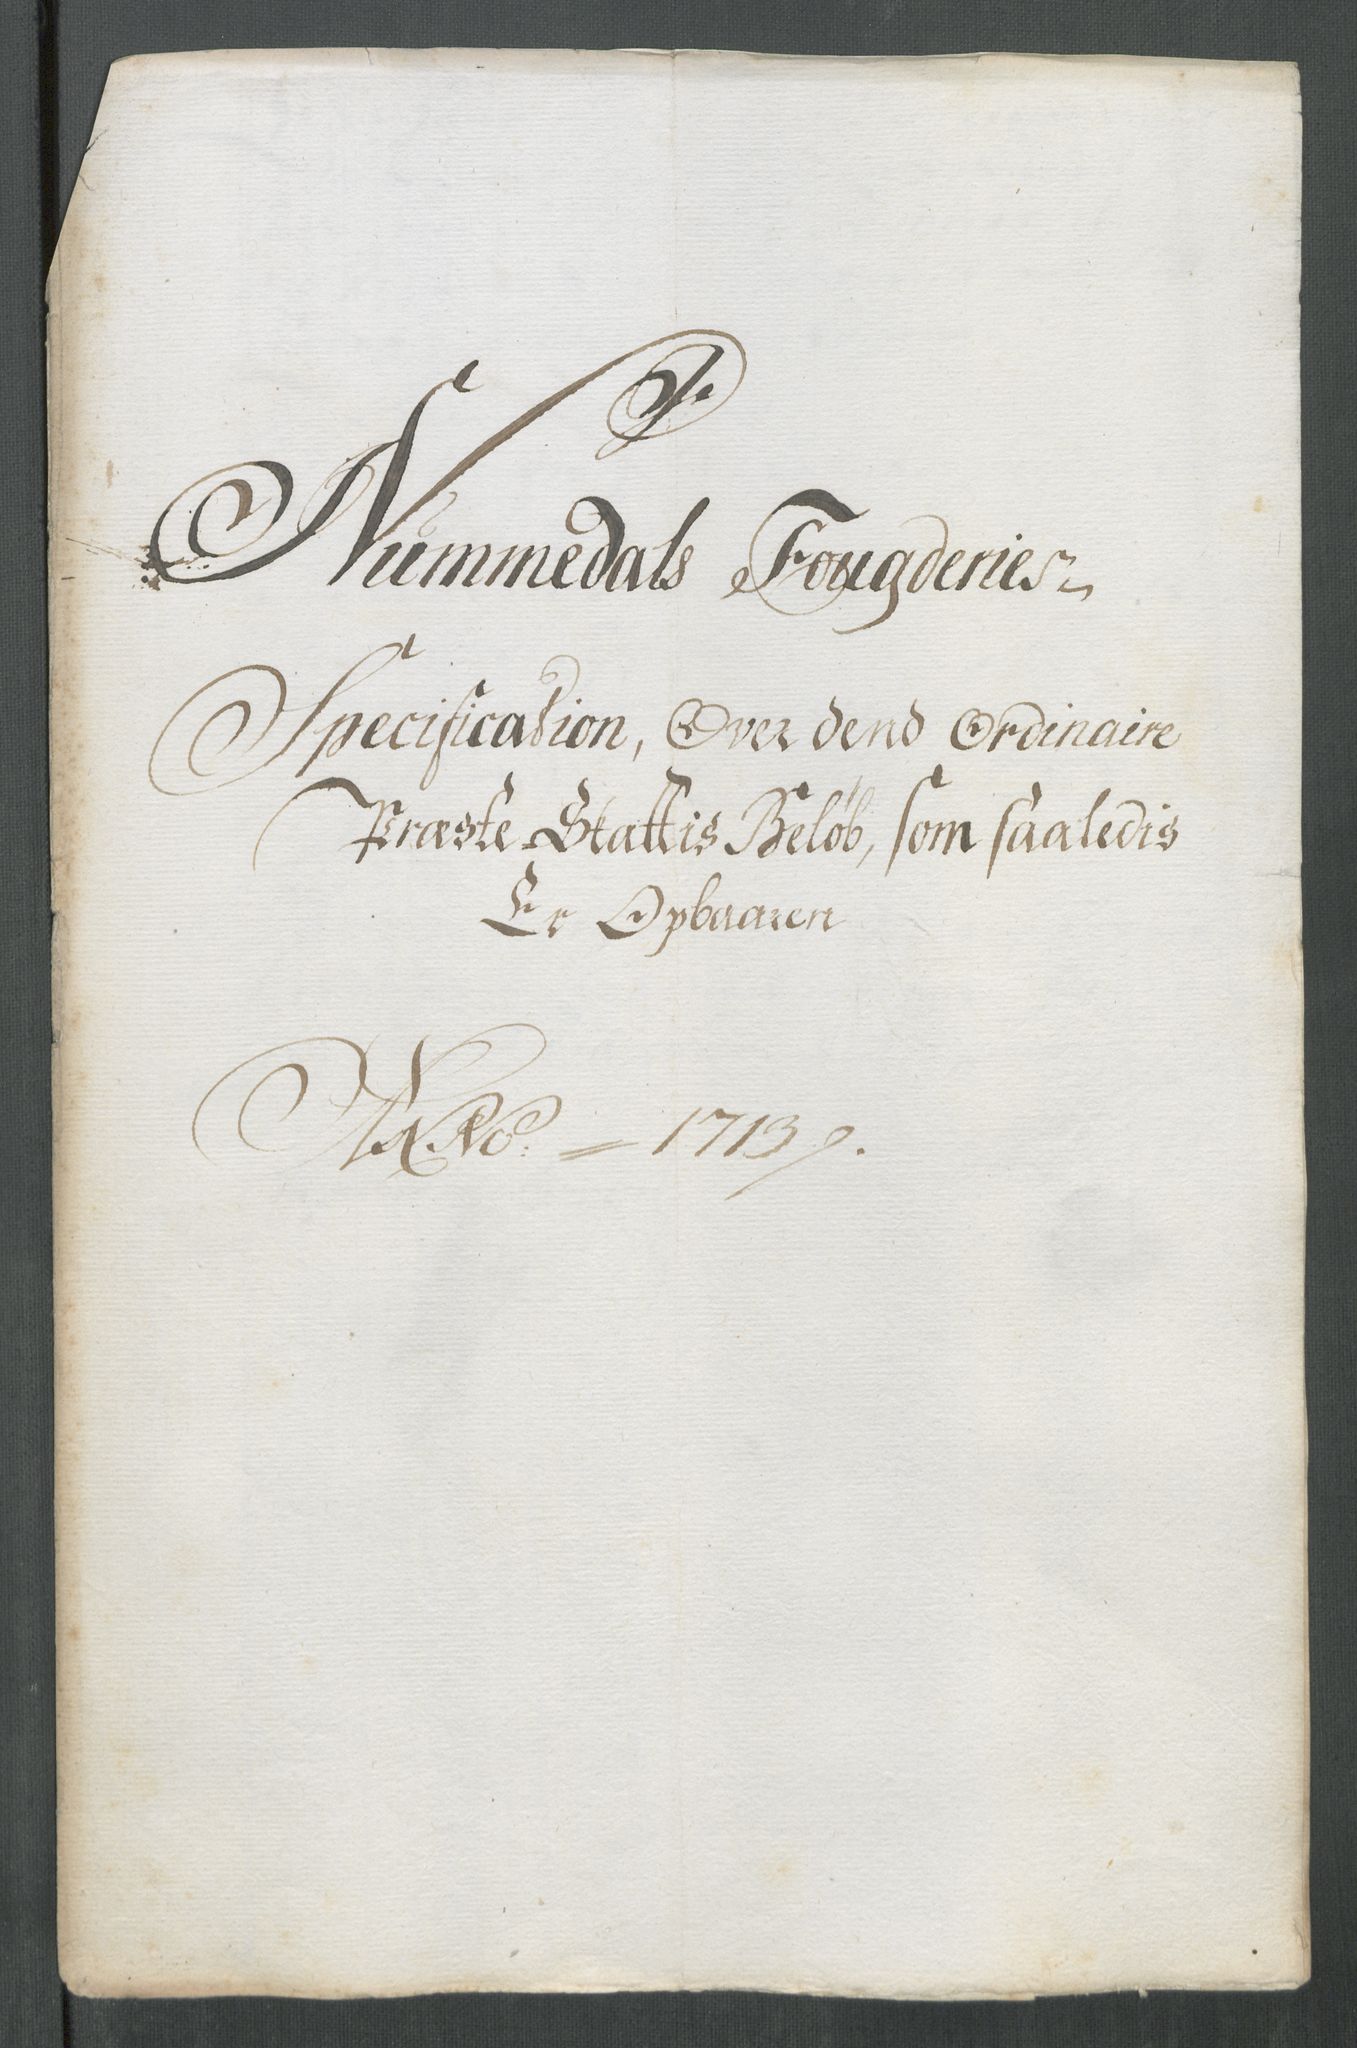 Nummedals Fougderies
Specification, Over dend Ordinaire
Præste Skattis Beløb, som saaledis
Er Opbaaren
ANNo: = 1713.